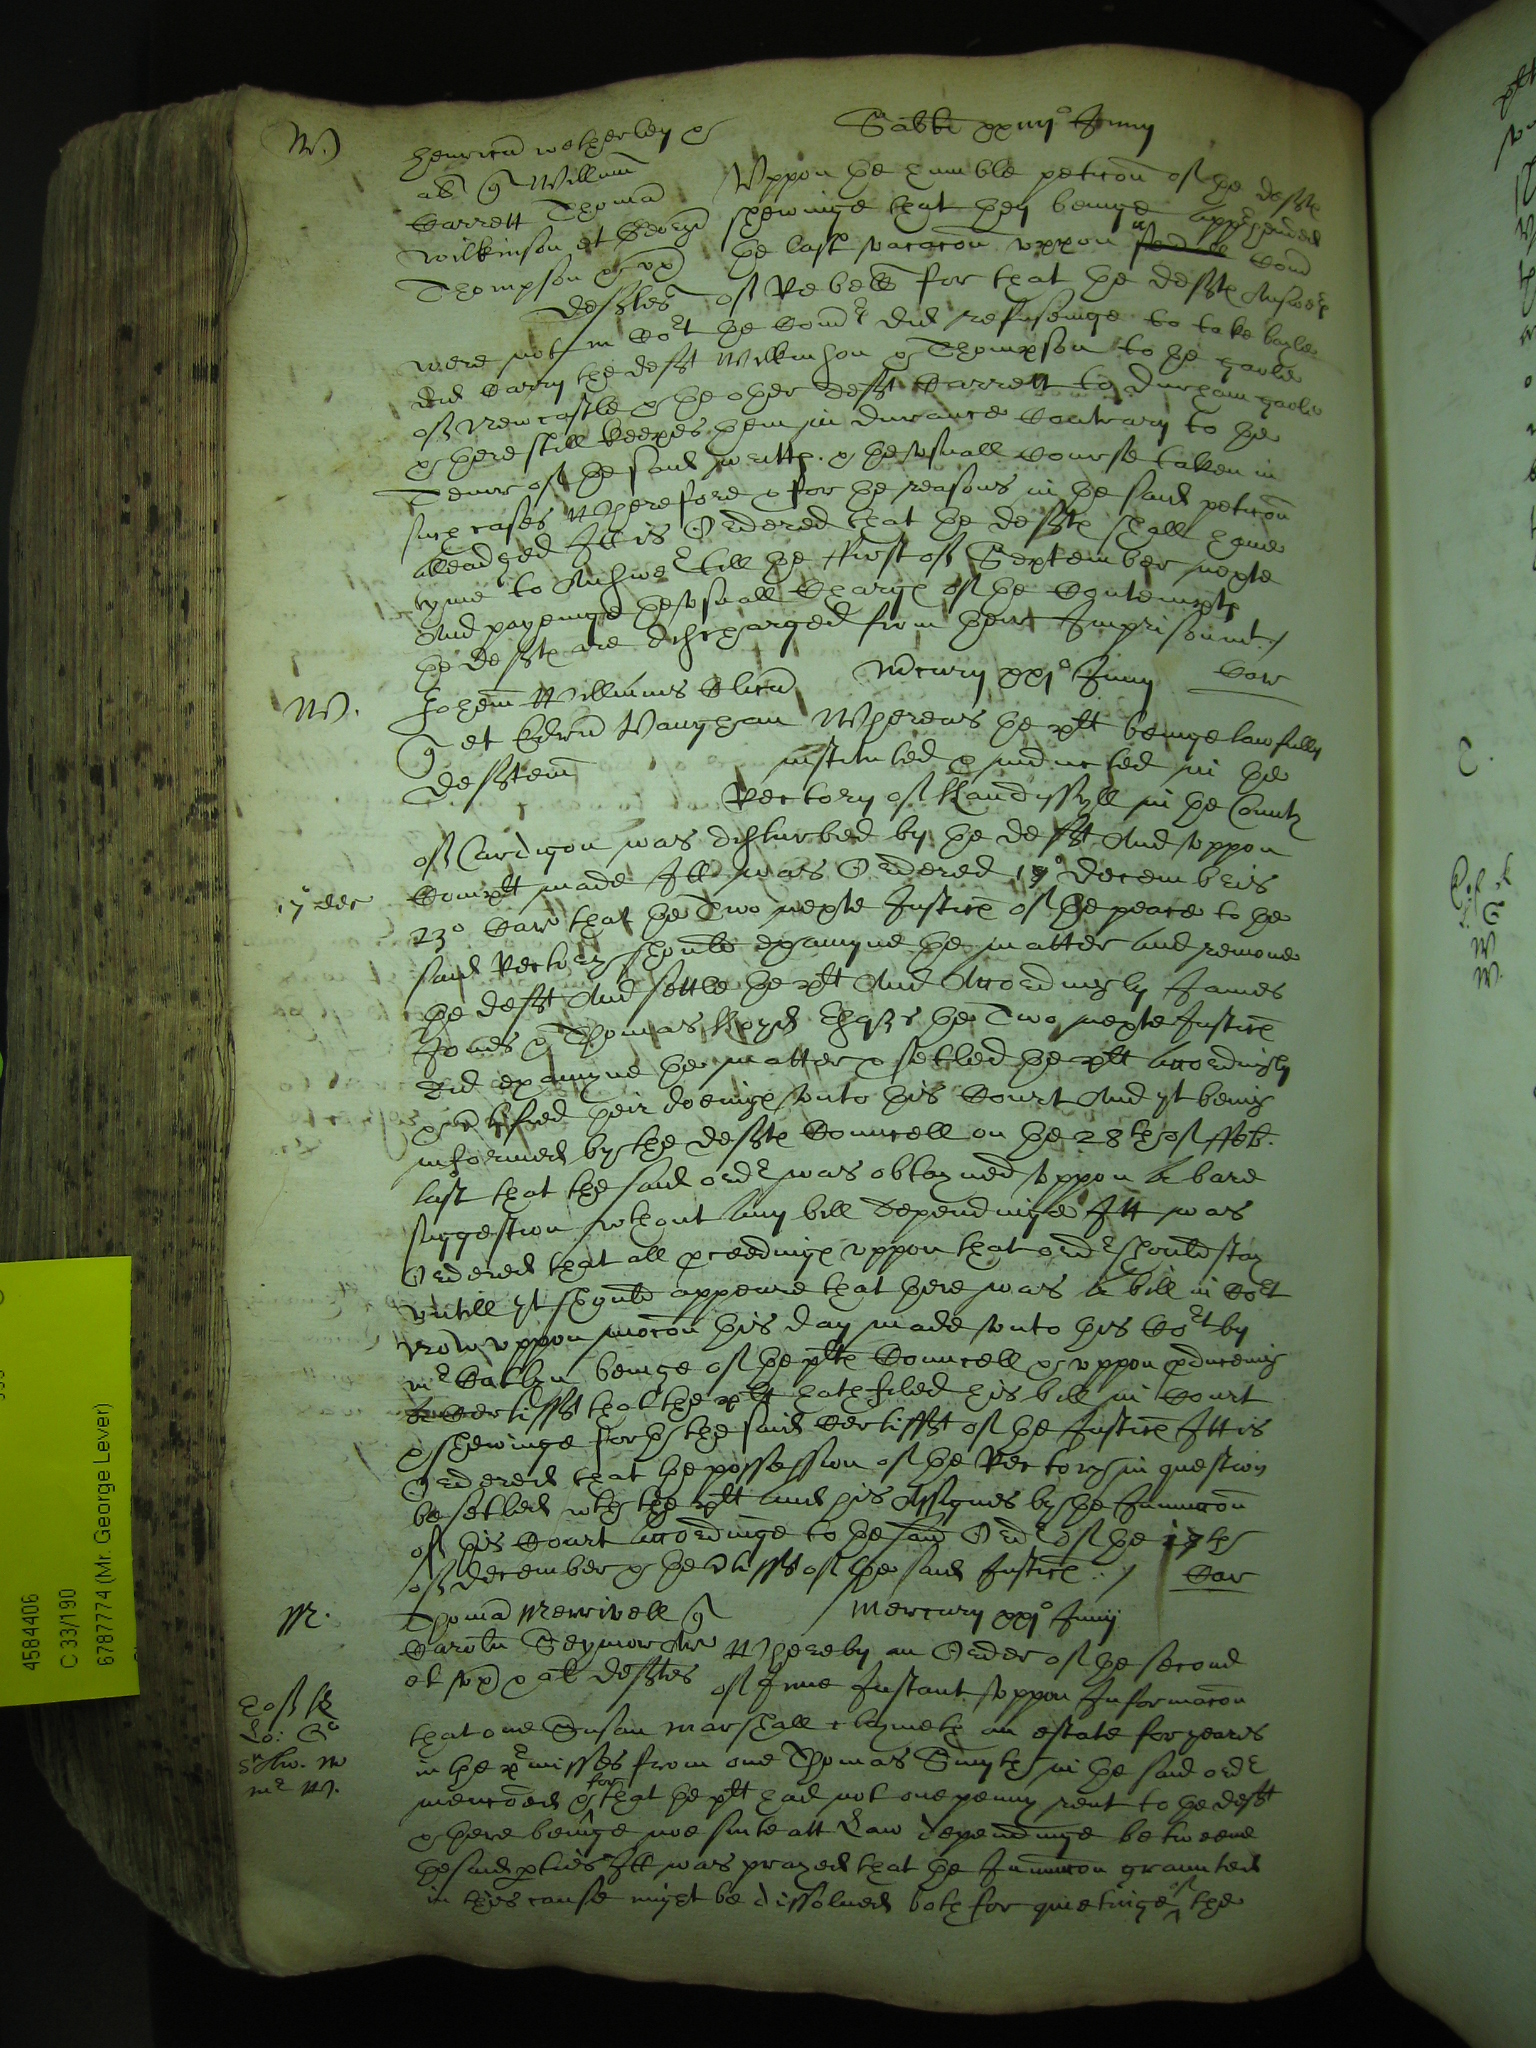 W.)
Sabbti xxiiij° Junij
Henricu wetherley &
al q Willum
Garrett Thoma
Wilkinson et Georgiu
Thompson & ux
defftes
Uppon the humble peticon of the defftes
shewinge that they beinge apprehended
the last vacacon uppon a Com
of Rebell for that the defftes Answer
were not in Cort the Comrs did refuseinge to take bayle
did Carry the defft Wilkinson & Thompson to the gaole
of Newcastle & the other defft Garrett to Durham gaole
& there still keepes them in durance Contrary to the
Tenor of the said writte. & the usuall Course taken in
such cases Wherefore & for the reasons in the said peticon
alleadged Itt is Ordered that the defftes shall have
tyme to Answer till the First of September nexte
And payenge the usuall Charges of the Contempte
the defftes are discharged from their Imprisonmt./
Mcurij xxj° Junij
Car
W.
Johem Williams Clicu
q et Edru Vaughan
defftem
Whereas the plt beinge lawfully
instituted & inducted in the
Rectory of Llandissyll in the County
of Cardigon was disturbed by the defft And uppon
Complt made Itt was Ordered 17° decembris
17° dec
23° Car that the Two nexte Justices of the peace to the
said Rectory should examyne the matter and remove
the defft And settle the plt And Accordingly James
Jones & Thomas Lloyd Esqrs the Two nexte Justices
did examyne the matter & setled the plt accordingly
& Certifyed their doeinges unto this Court And yt being
informed by the defftes Councell on the 28th of ffeb.
last that the said order was obtayned uppon A bare
suggestion without any bill dependinge Itt was
Ordered that all proceedinges uppon that order should stay
untill yt should appeare that there was A bill in Cort
Now uppon mocon this day made unto this Cort by
mr Catlyn beinge of the pltes Councell & uppon produceing
Certifft that the plt hath filed his bill in Court
& shewinge forth the said Certifft of the Justices Itt is
Ordered that the possession of the Rectory in question
be setled with the plt and his Assignes by the Iniunccon
of this Court accordinge to the said Order of the 17th
of December & the Certifft of the said Justices :/
Car
M.
Thoma Merrivell q
Carolu Seymor Ar
et ux & al defftes
Mercurij xxj° Junij
Whereby an Order of the second
of June Instant uppon Informacon
that one Susan Marshall claymeth an estate for yeares
in the premisses from one Thomas Smyth in the said order
mencoed & for that the plt had not one penny rent to the defft
& there beinge noe suite att Law dependinge betweene
the said parties Itt was prayed that the Iniunccon graunted
in this cause might be dissolved both for quietinge of the
mr W.
4584406
C 33/190
6787774 (Mr. George Lever)